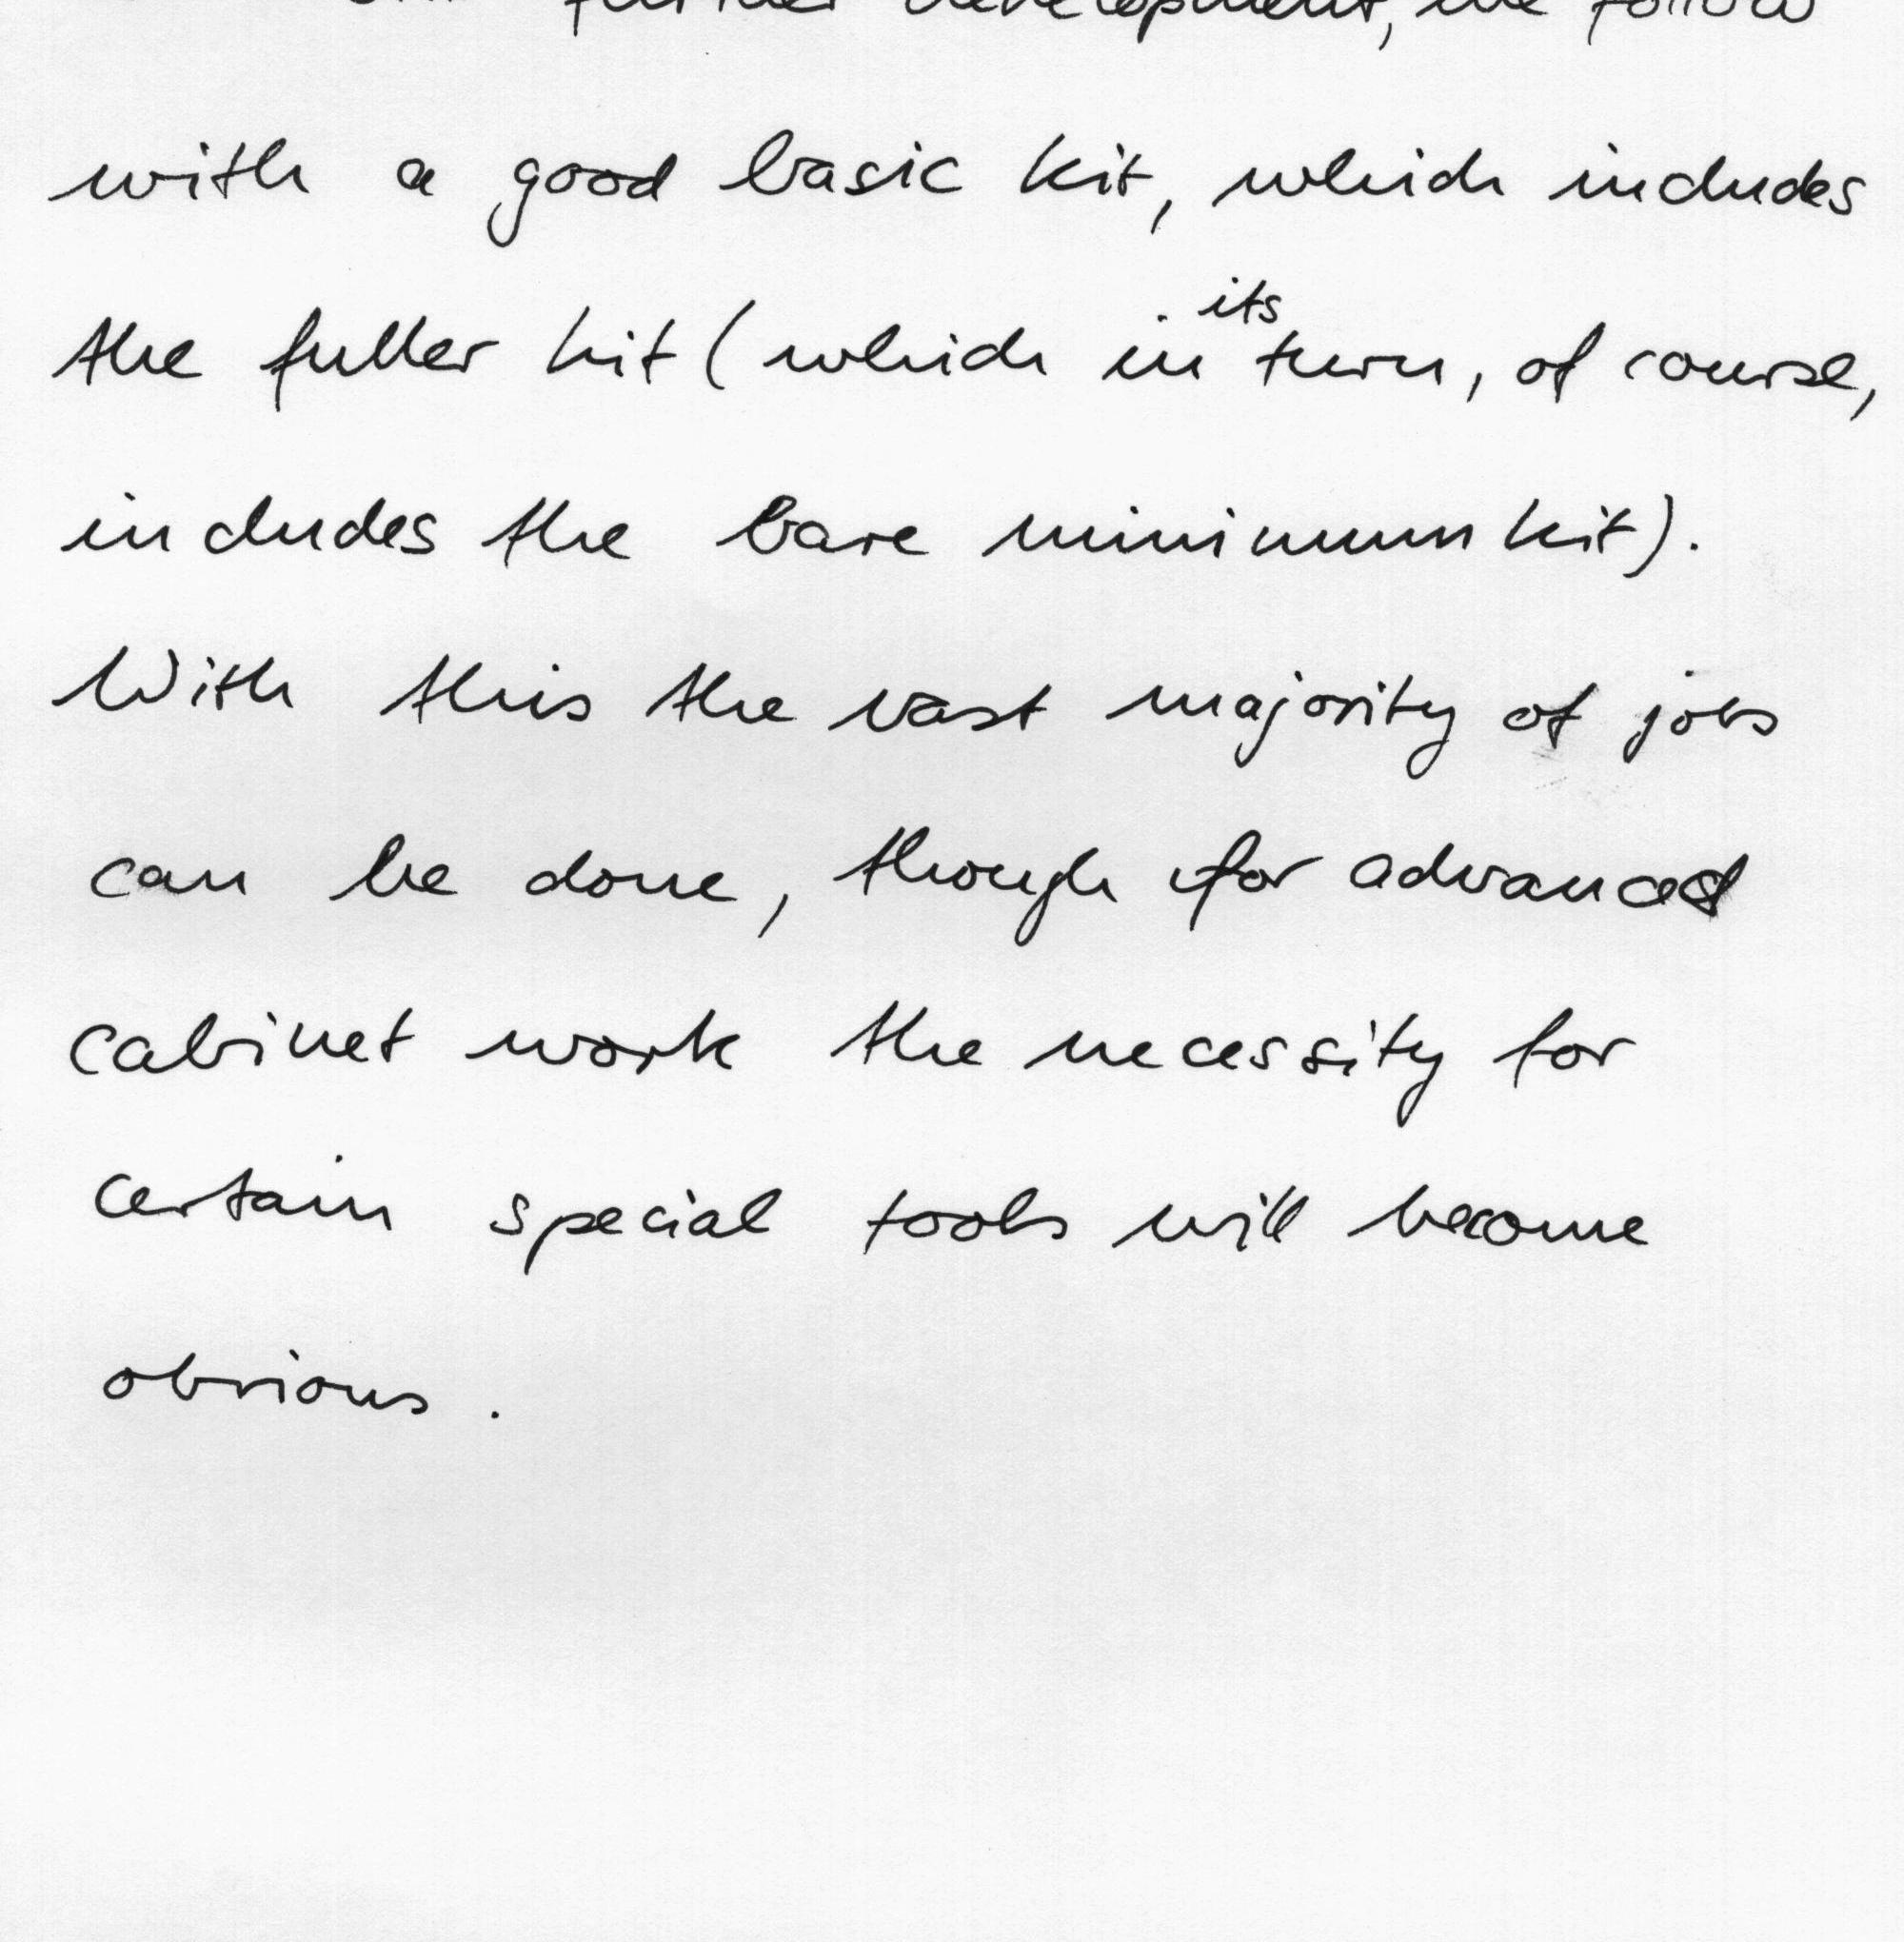 further development, we follow
with a good basic kit, which includes
the fuller kit (which in its turn, of course,
includes the bare minimum kit).
With this the vast majority of jobs
can be done, though for advanced
cabinet work the necessity for
certain special tools will become
obvious.